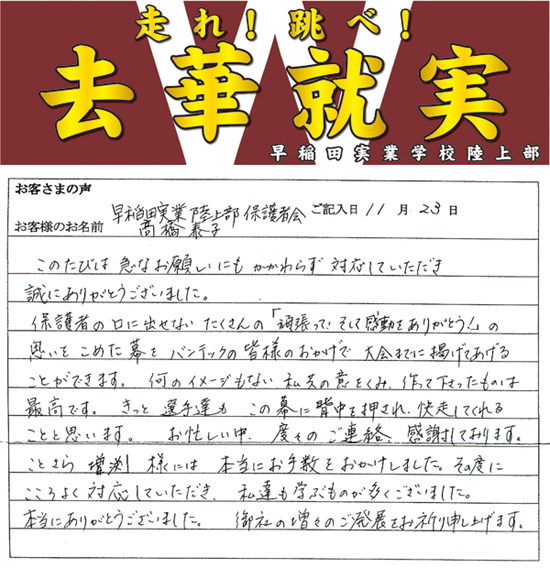 走れ！跳べ！
去華就実
早稲田実業学校陸上部
お客さまの声
早稲田実業陸上部保護者会 ご記入日 11 月 23 日
お客様のお名前 高橋泰子
このたびは 急なお願いにもかかわらず 対応していただき
誠にありがとうございました。
保護者の口に出せない たくさんの「頑張って！そして感動をありがとう！」の
思いを こめた幕を バンテックの皆様のおかげで 大会までに掲げてあげる
ことができます。 何のイメージもない 私共の意をくみ、作って下さったものは
最高です。 きっと 選手達も この幕に背中を押され、快走してくれる
ことと思います。 お忙しい中、度々のご連絡 感謝しております。
ことさら 増渕 様には 本当にお手数をおかけしました。その度に
こころよく対応していただき、私達も学ぶものが多くございました。
本当にありがとうございました。 御社の増々のご発展をお祈り申し上げます。